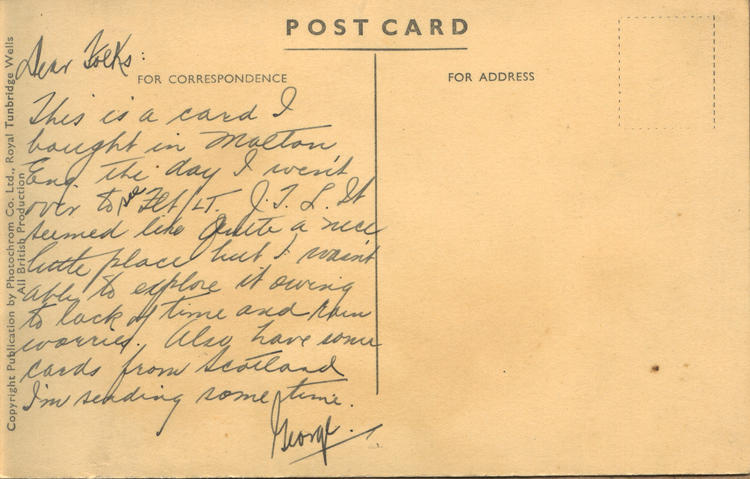 POST CARD
FOR CORRESPONDENCE
FOR ADDRESS
Dear Folks:
This is a card I
bought in Malton
Eng. the day I went
over to see Flt/LT. J.T.L. It
seemed like quite a nice
little place but I wasn't
able to explore it owing
to lack of time and train
worries. Also have some
cards from Scotland
I'm sending some time.
George.
Copyright Publication by Photochrom Co. Ltd., Royal Tunbridge Wells
All British Production